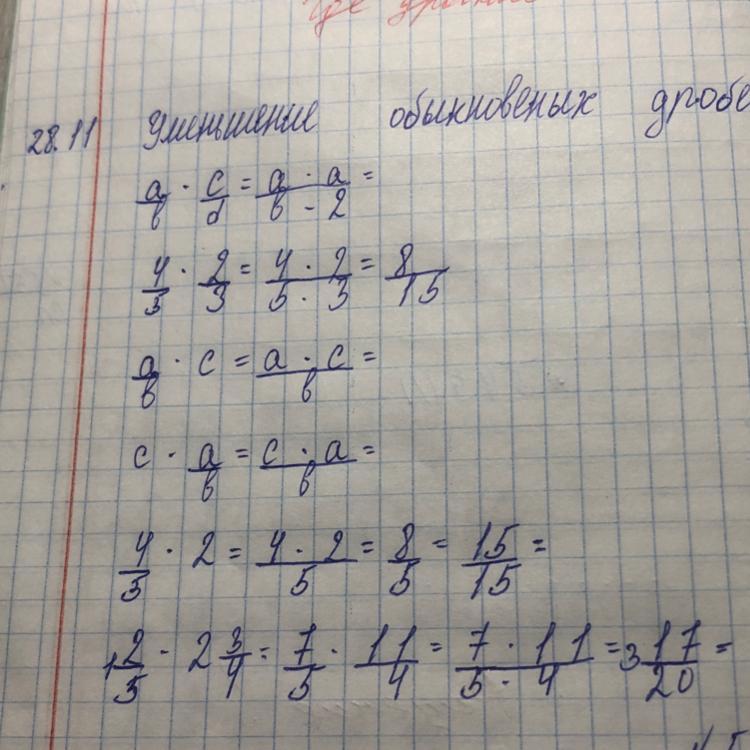 28.11 Уменьшение обыкновеных дробе
a/b · c/d = a · a / b - 2 =
4/5 · 2/3 = 4 · 2 / 5 · 3 = 8/15
a/b · c = a · c / b =
c · a/b = c · a / b =
4/5 · 2 = 4 · 2 / 5 = 8/5 = 15/15 =
1 2/5 · 2 3/4 = 7/5 · 11/4 = 7 · 11 / 5 · 4 = 3 17/20 =